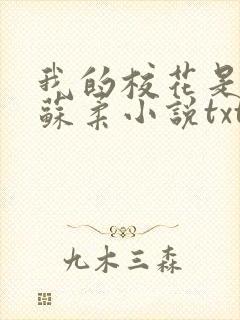 我的校花是
蘇柔小說txt
九木三森